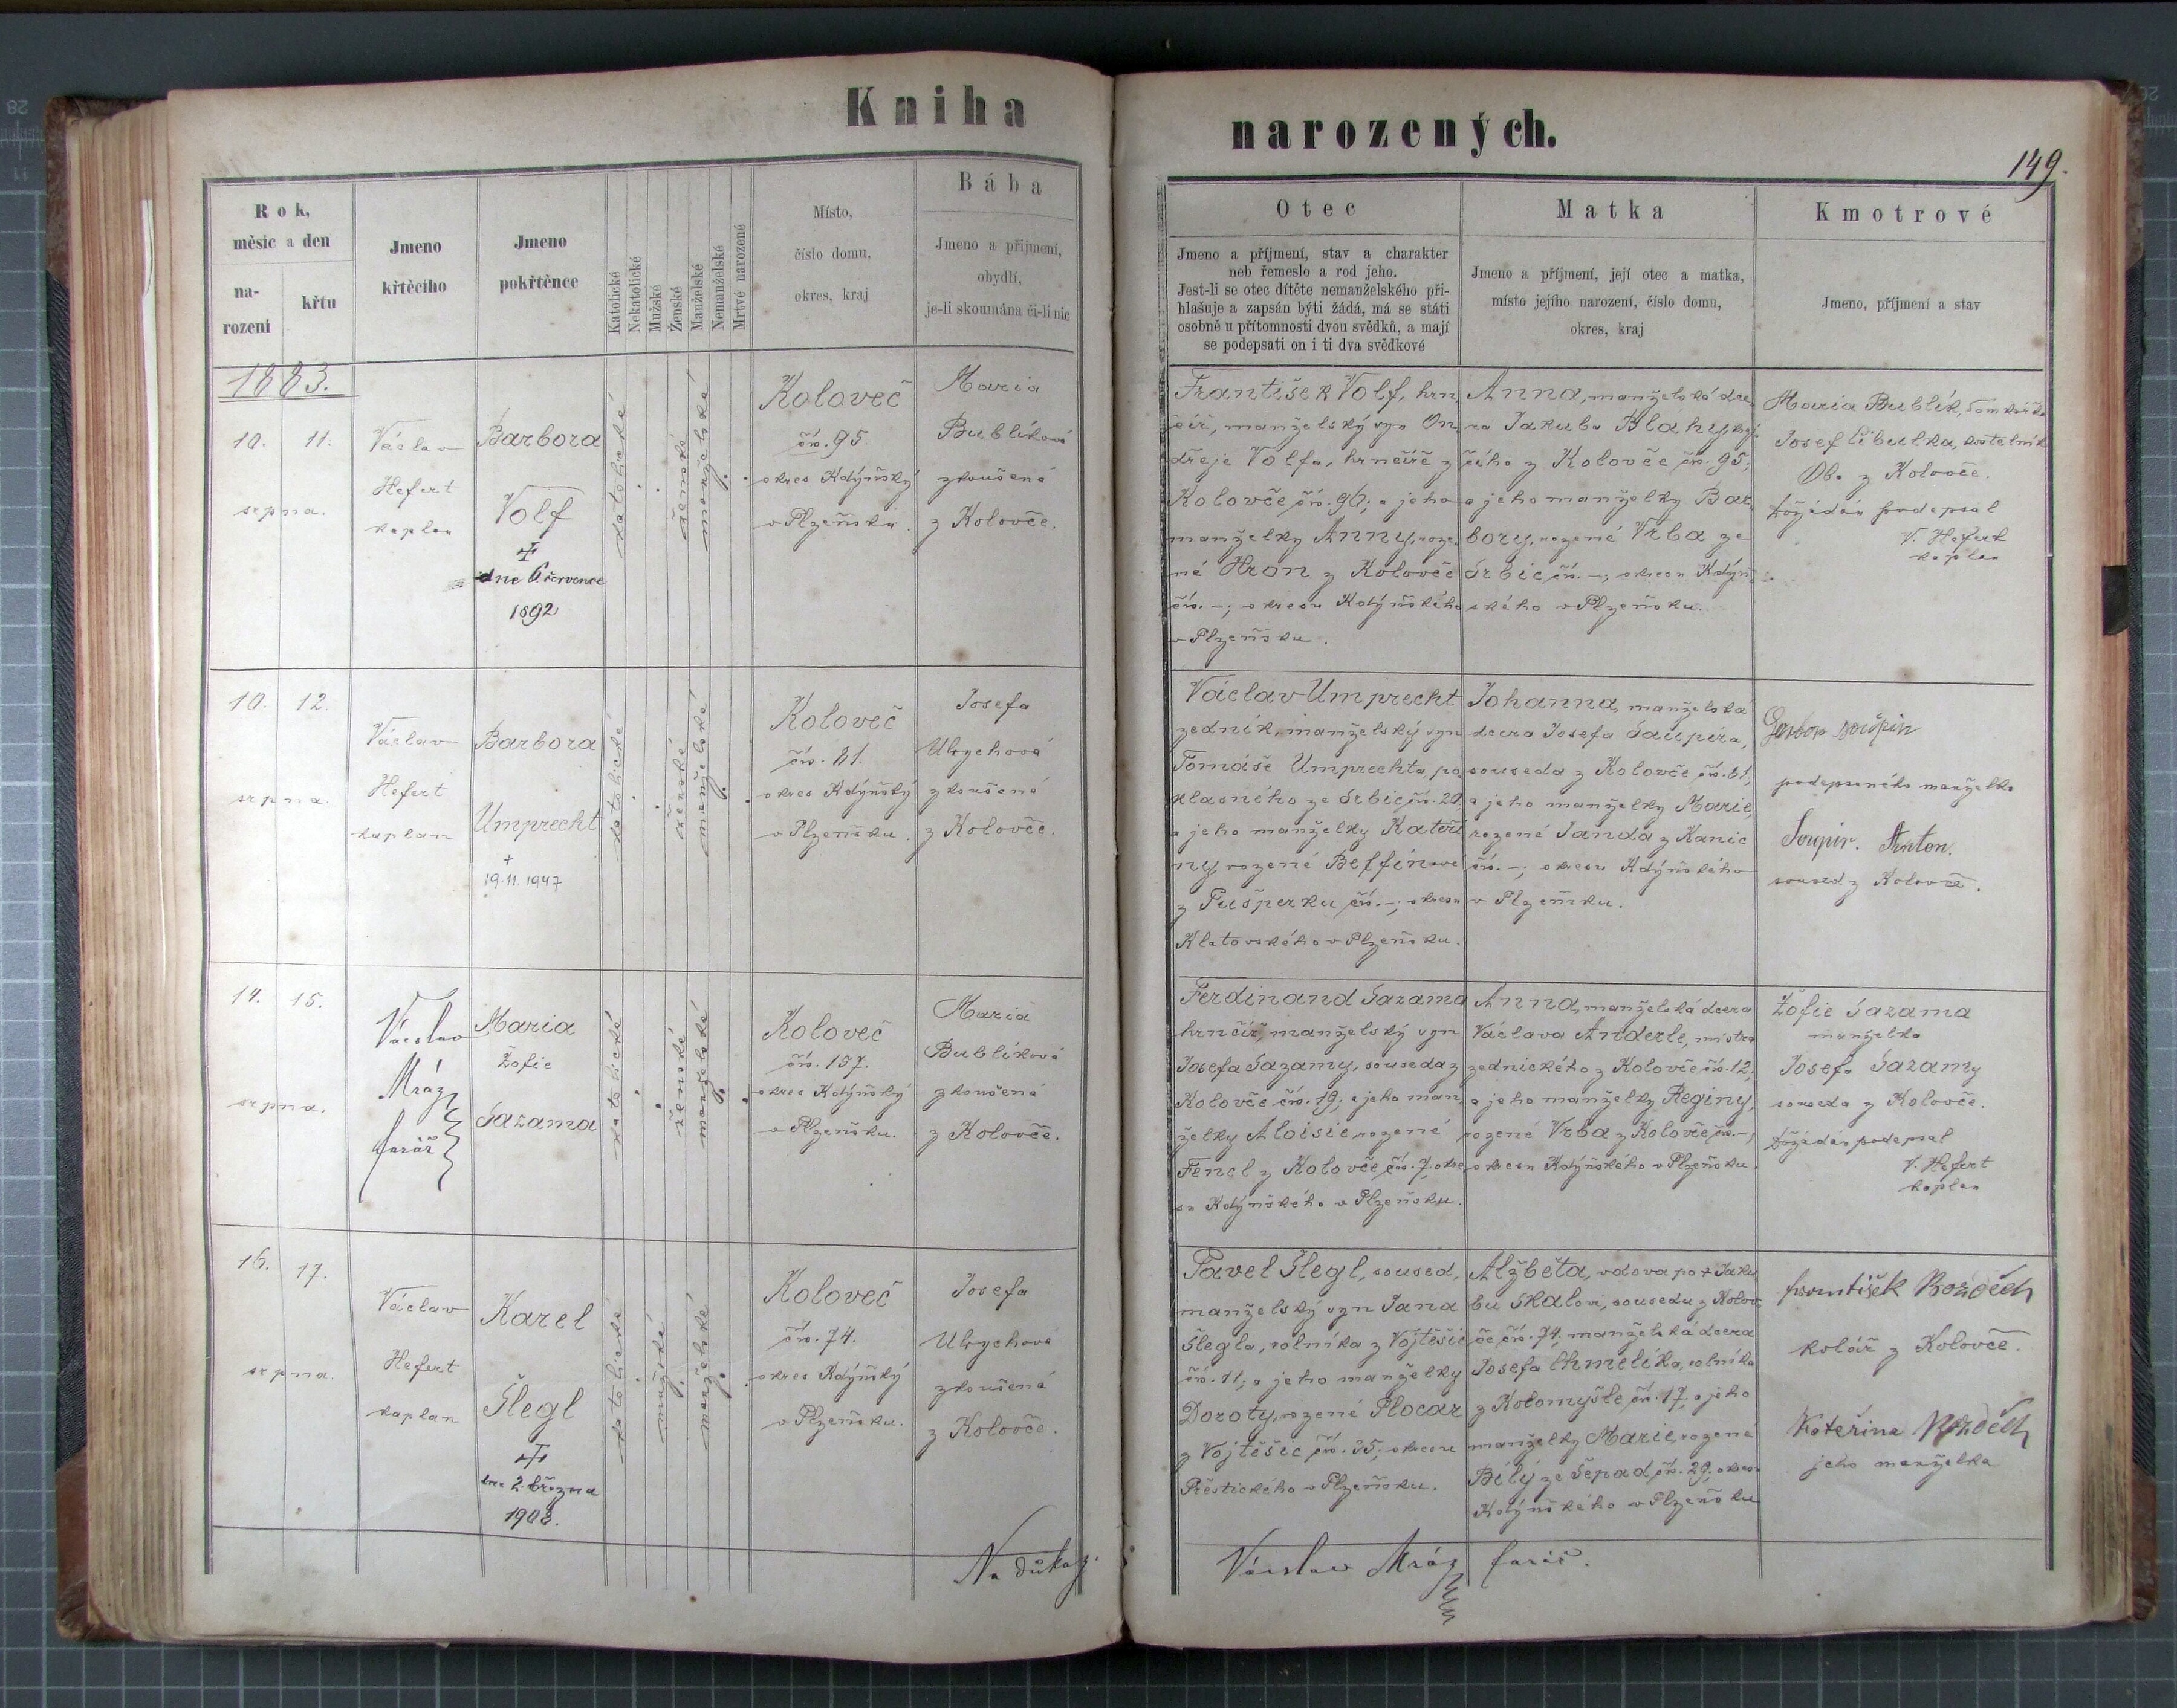 Kniha
narozených.
149.
Rok,
měsíc a den
na-
rozeni
křtu
Jmeno
křtěcího
Jmeno
pokřtěnce
Katolické
Nekatolické
Mužské
Ženské
Manželské
Nemanželské
Mrtvé narozené
Místo,
číslo domu,
okres, kraj
Bába
Jmeno a přijmení,
obydlí,
je-li zkoumána či-li nic
Otec
Jmeno a příjmení, stav a charakter
neb řemeslo a rod jeho.
Jest-li se otec dítěte nemanželského při-
hlašuje a zapsán býti žádá, má se státi
osobně u přítomnosti dvou svědků, a mají
se podepsati on i ti dva svědkové
Matka
Jmeno a příjmení, její otec a matka,
místo jejího narození, číslo domu,
okres, kraj
Kmotrové
Jmeno, příjmení a stav
1883.
10. 11.
srpna.
Václav
Hefert
kaplan
Barbora
Volf
dne 6. července
1892
katolické
ženské
manželské
Koloveč
čís. 95
okres Kdýňský
v Plzeňsku.
Maria
Bublíková
zkoušená
z Kolovče.
František Volf, hrn
číř, manželský syn On
dřeje Volfa, hrnčíře z
Kolovče čís. 96; a jeho
manželky Anny, roze
né Hron z Kolovče
čís. -; okresu Kdýňského
v Plzeňsku.
Anna, manželská dce
ra Jakuba Bláhy, krej
čího z Kolovče čís. 95;
a jeho manželky Bar
bory, rozené Vrba ze
Srbic čís. -; okresu Kdýň
ského v Plzeňsku.
Maria Bublík, domkářka
Josef Cibulka, kostelník
Oba z Kolovče.
Dožádán podepsal
V. Hefert
kaplan
10. 12.
srpna
Václav
Hefert
kaplan
Barbora
Umprecht
+
19.11.1947
katolické
ženské
manželské
Koloveč
čís. 81.
okres Kdýňský
v Plzeňsku.
Josefa
Ulrychová
zkoušená
z Kolovče.
Václav Umprecht
zedník, manželský syn
Tomáše Umprechta, po
klasného ze Srbic čís. 20
a jeho manželky Kateři
ny, rozené Beffínové
z Pušperku čís. -; okresu
Klatovského v Plzeňsku.
Johanna, manželská
dcera Josefa Saupíra,
souseda z Kolovče čís. 81;
a jeho manželky Marie,
rozené Janda z Kanic
čís. -; okresu Kdýňského
v Plzeňsku.
podepsaného manželka
Soupir. Anton.
soused z Kolovče.
14. 15.
srpna.
Václav
Mráz
farář
Maria
Žofie
Sazama
katolické
ženské
manželské
Koloveč
čís. 157.
okres Kdýňský
v Plzeňsku.
Maria
Bublíková
zkoušená
z Kolovče.
Ferdinand Sazama
hrnčíř, manželský syn
Josefa Sazamy, souseda z
Kolovče čís. 19; a jeho man
želky Aloisie, rozené
Fencl z Kolovče čís. 7. okre
su Kdýňského v Plzeňsku.
Anna, manželská dcera
Václava Anderle, mistra
zednického z Kolovče čís. 12;
a jeho manželky Reginy,
rozené Vrba z Kolovče čís. -;
okresu Kdýňského v Plzeňsku
Žofie Sazama
manželka
Josefa Sazamy
souseda z Kolovče.
Dožádán podepsal
V. Hefert
kaplan
16. 17.
srpna.
Václav
Hefert
kaplan
Karel
Šlegl
dne 2. března
1903.
katolické
mužské
manželské
Koloveč
čís. 74.
okres Kdýňský
v Plzeňsku.
Josefa
Ulrychová
zkoušená
z Kolovče.
Pavel Šlegl, soused,
manželský syn Jana
Šlegla, rolníka z Vojtěšic
čís. 11; a jeho manželky
Doroty, rozené Plocar
z Vojtěšic čís. 35; okresu
Přestického v Plzeňsku.
Alžběta, vdova po + Jaku
bu Skalovi, sousedu z Kolov
če čís. 74, manželská dcera
Josefa Chmelíka, rolníka
z Kolomyšle čís. 17; a jeho
manželky Marie, rozené
Bílý ze Šepad čís. 29; okresu
Kdýňského v Plzeňsku
František Bozděch
kolář z Kolovče.
Kateřina Bozděch
jeho manželka
Na důkaz.
Václav Mráz farář.